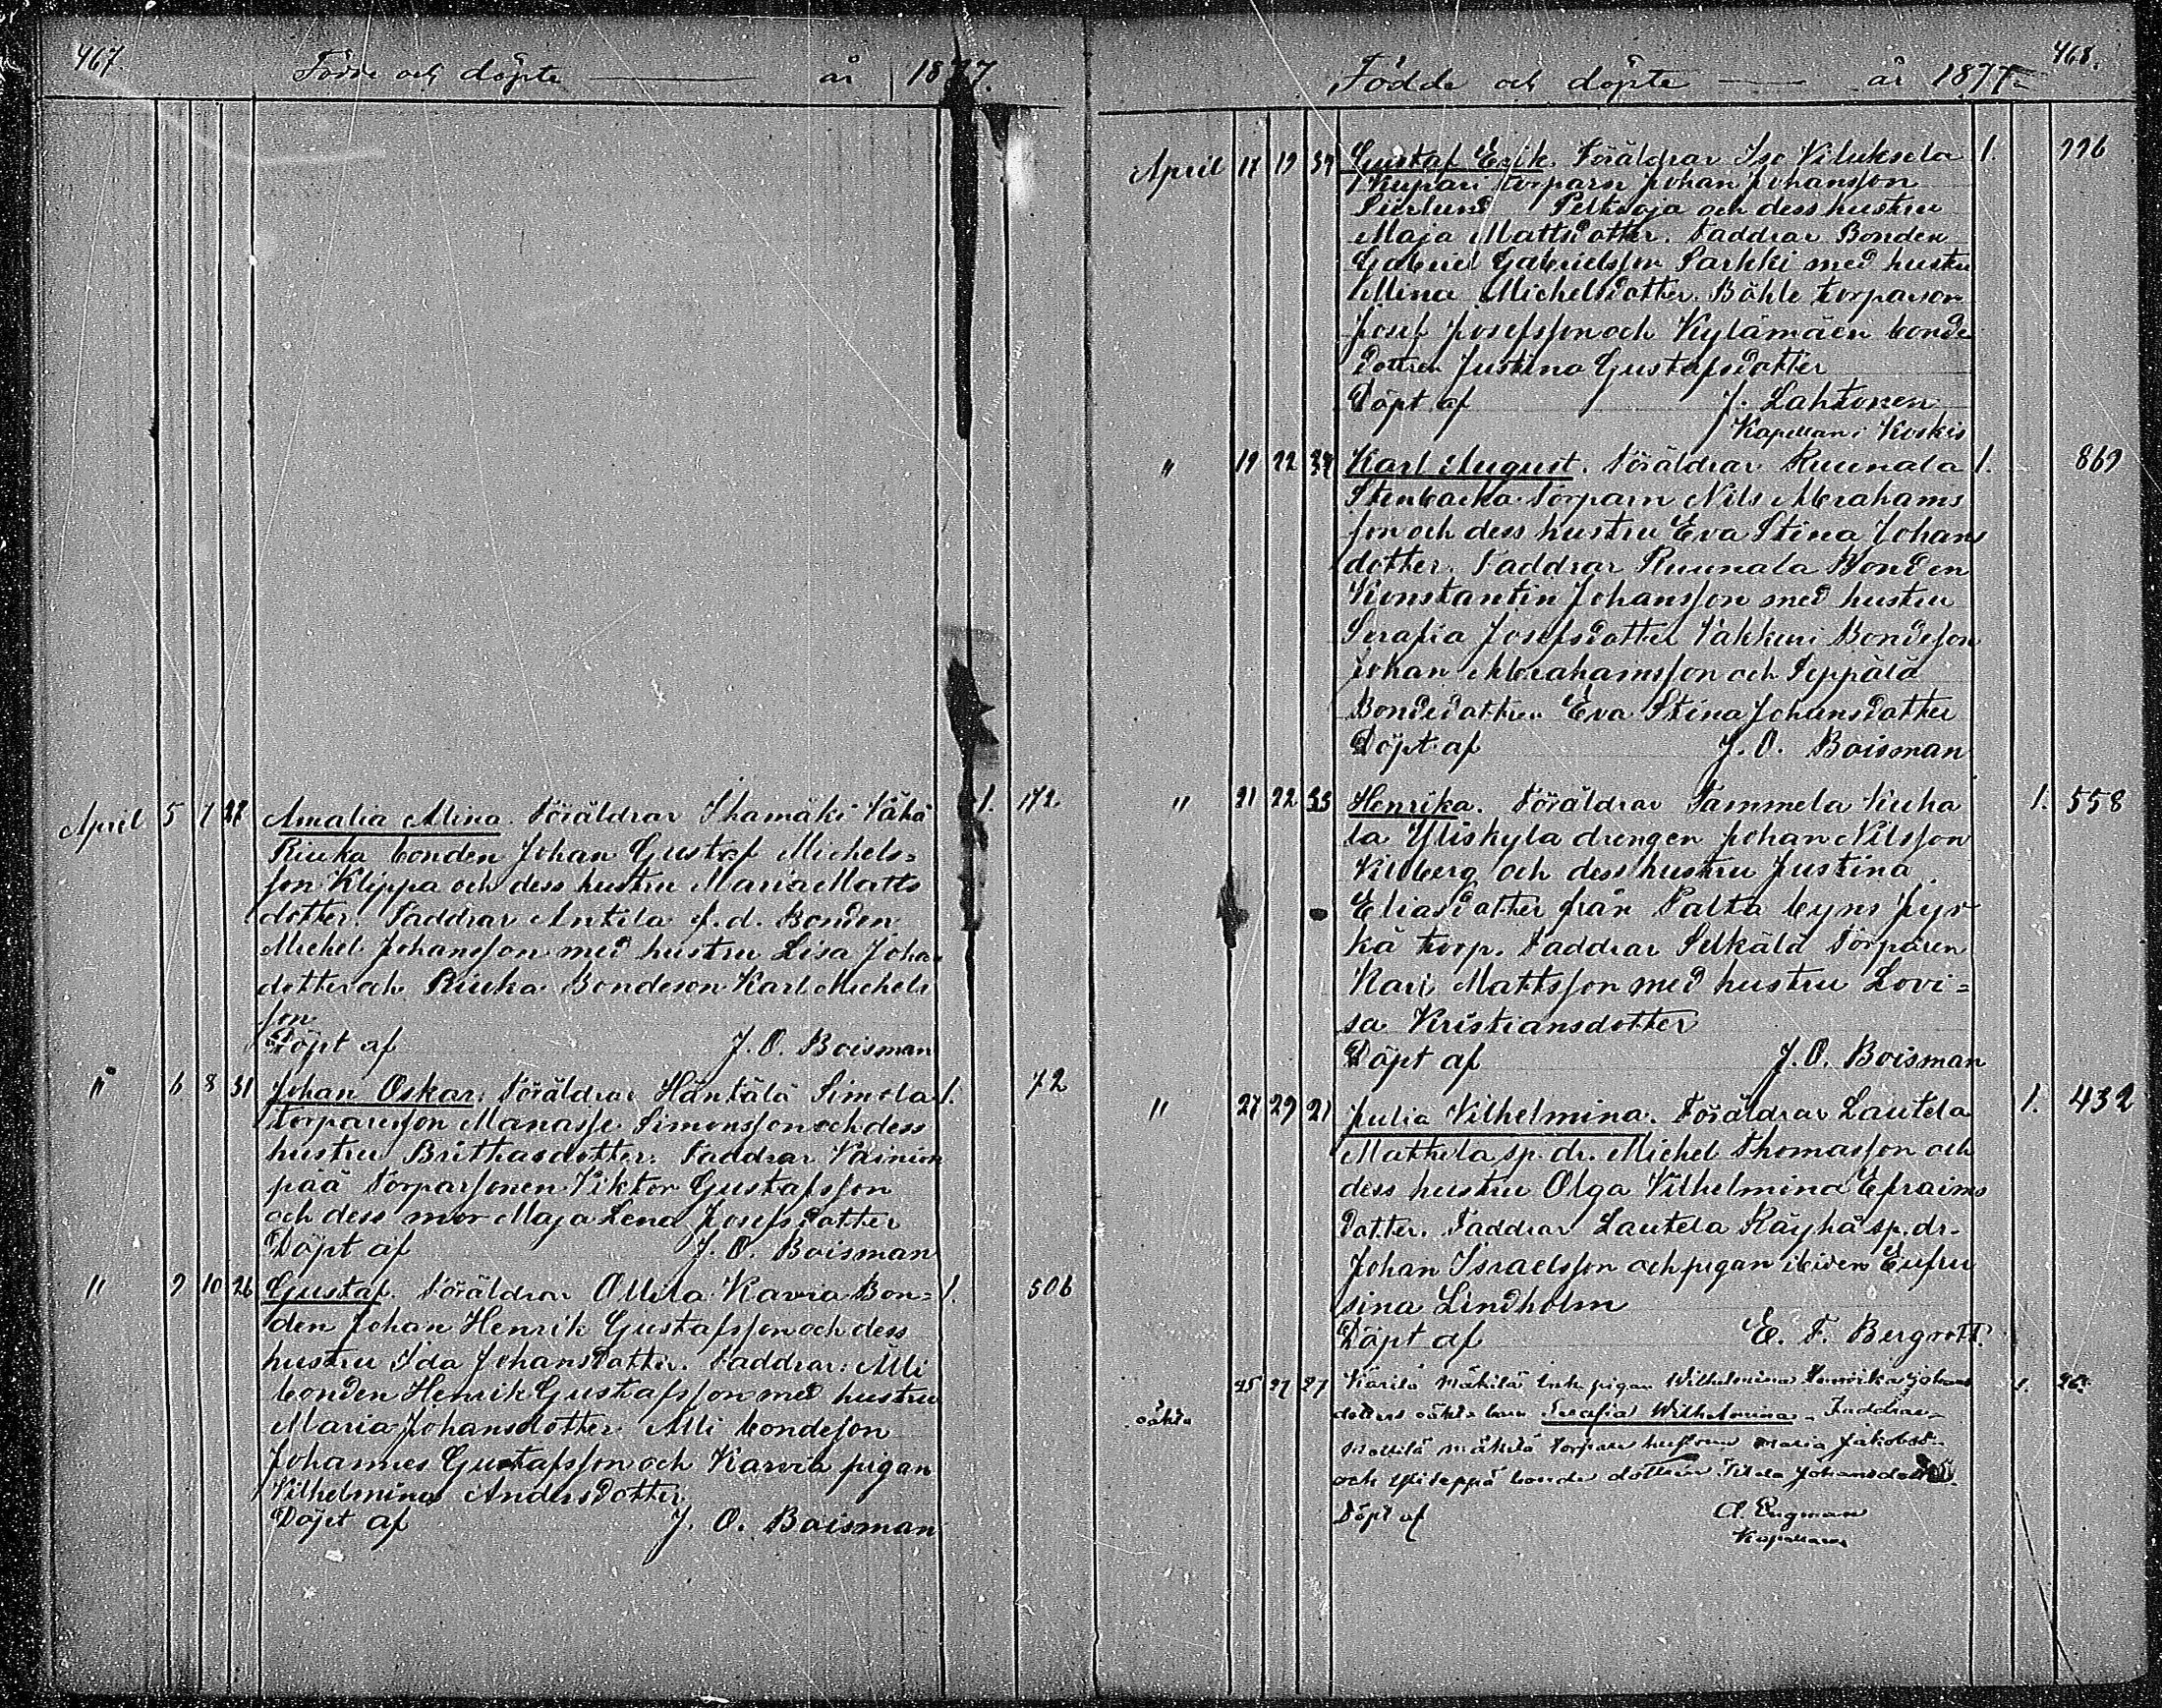 467.
Födde och döpte — år 1877.
April 5 7 27 Amalia Mina. Föräldrar Ihamäki Vähä 1. 172
Riuka bonden Johan Gustaf Michels=
son Klippa och dess hustru Maria Matts
dotter. Faddrar Anttila f.d. Bonden
Michel Johansson med hustru Lisa Johans
dotter och Riuka Bondeson Karl Michels
son
Döpt af J. O. Boisman
" 6 8 31 Johan Oskar. Föräldrar Häntälä Simola 1. 72
torpareson Manasse Simonsson och dess
hustru Brithasdotter. Faddrar Vainion
pää Torparsonen Viktor Gustafsson
och dess mor Maja Lena Josefsdotter
Döpt af J. O. Boisman
" 9 10 26 Gustaf. Föräldrar Ollila Karvia Bon= 1. 506
den Johan Henrik Gustafsson och dess
hustru Ida Johansdotter. Faddrar: Alli
bonden Henrik Gustafsson med hustru
Maria Johansdotter Alli bondeson
Johannes Gustafsson och Karvia pigan
Vilhelmina Andersdotter
Döpt af J. O. Boisman
468.
Födde och döpte — år 1877
April 17 19 37 Gustaf Erik. Föräldrar Iso Viluksela 1. 996
Kupari torparn Johan Johansson
Peltooja och dess hustru
Maja Mattsdotter. Faddrar Bonden
Gabriel Gabrielsson Parkki med hustru
Mina Michelsdotter. Böhle torparson
Josef Josefsson och Kylämäen bonde
dottren Justina Gustafsdotter
Döpt af J. Lahtonen
Kapellan i Koskis
" 19 22 37 Karl August. Föräldrar Ruunala 1. 869
Stenbacka Torparn Nils Abrahams
son och dess hustru Eva Stina Johans
dotter. Faddrar Ruunala Bonden
Konstantin Johansson med hustru
Serafia Josefsdotter Väkkeri Bondeson
Johan Abrahamsson och Seppälä
Bondedottren Eva Stina Johansdotter
Döpt af J. O. Boisman
" 21 22 33 Henrika. Föräldrar Tammela Kuha 1. 558
la Yliskyla drengen Johan Nilsson
Vildberg och dess hustru Justina
Eliasdotter från Palta byns Jys
kä torp. Faddrar Sukälä Torparen
Karl Mattsson med hustru Lovi=
sa Kristiansdotter
Döpt af J. O. Boisman
" 27 29 21 Julia Vilhelmina. Föräldrar Lautela 1. 432
Mattila sp. dr. Michel Thomasson och
dess hustru Olga Vilhelmina Efraims
dotter. Faddrar Lautela Räyhä sp. dr.
Johan Israelsson och pigan ibidem Eufru
sina Lindholm
Döpt af E. F. Bergrott.
25 27 27 Karilä Mäkilä pigan Wilhelmina Henrika Johans 1. 26.
oäkta dotters oäkta barn Serafia Wilhelmina. Faddrar
Mäkilä torpare hustrun Maria Jakobsd.
och bonde dottren Johansdotter.
Döpt af A. Engman
Kapellan